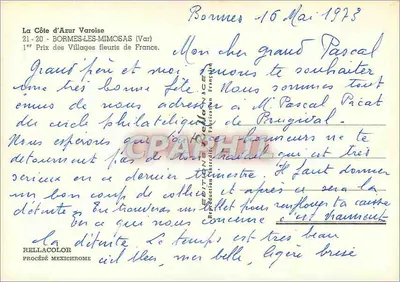 La Côte d'Azur Varoise
21 - 20 - BORMES-LES-MIMOSAS (Var)
1er Prix des Villages fleuris de France.
Bormes 16 Mai 1973
Mon cher grand Pascal
Grand père et moi, venons te souhaiter
une très bonne fête. Nous sommes tout
émus de nous adresser à Mr Pascal Picat
du cercle philatélique de
Nous espérons que honneurs ne te
détournent pas de qui est très
sérieux en ce dernier trimestre. Il faut donner
un bon coup de collier et après ce sera la
détente. Tu trouveras un billet pour renflouer ta caisse
ce qui nous concerne c'est vraiment
la détente. Le temps est très beau
ciel bleu, mer belle, légère brise
RELLACOLOR
PROCÉDÉ MEXICHROME
CPAPHIL